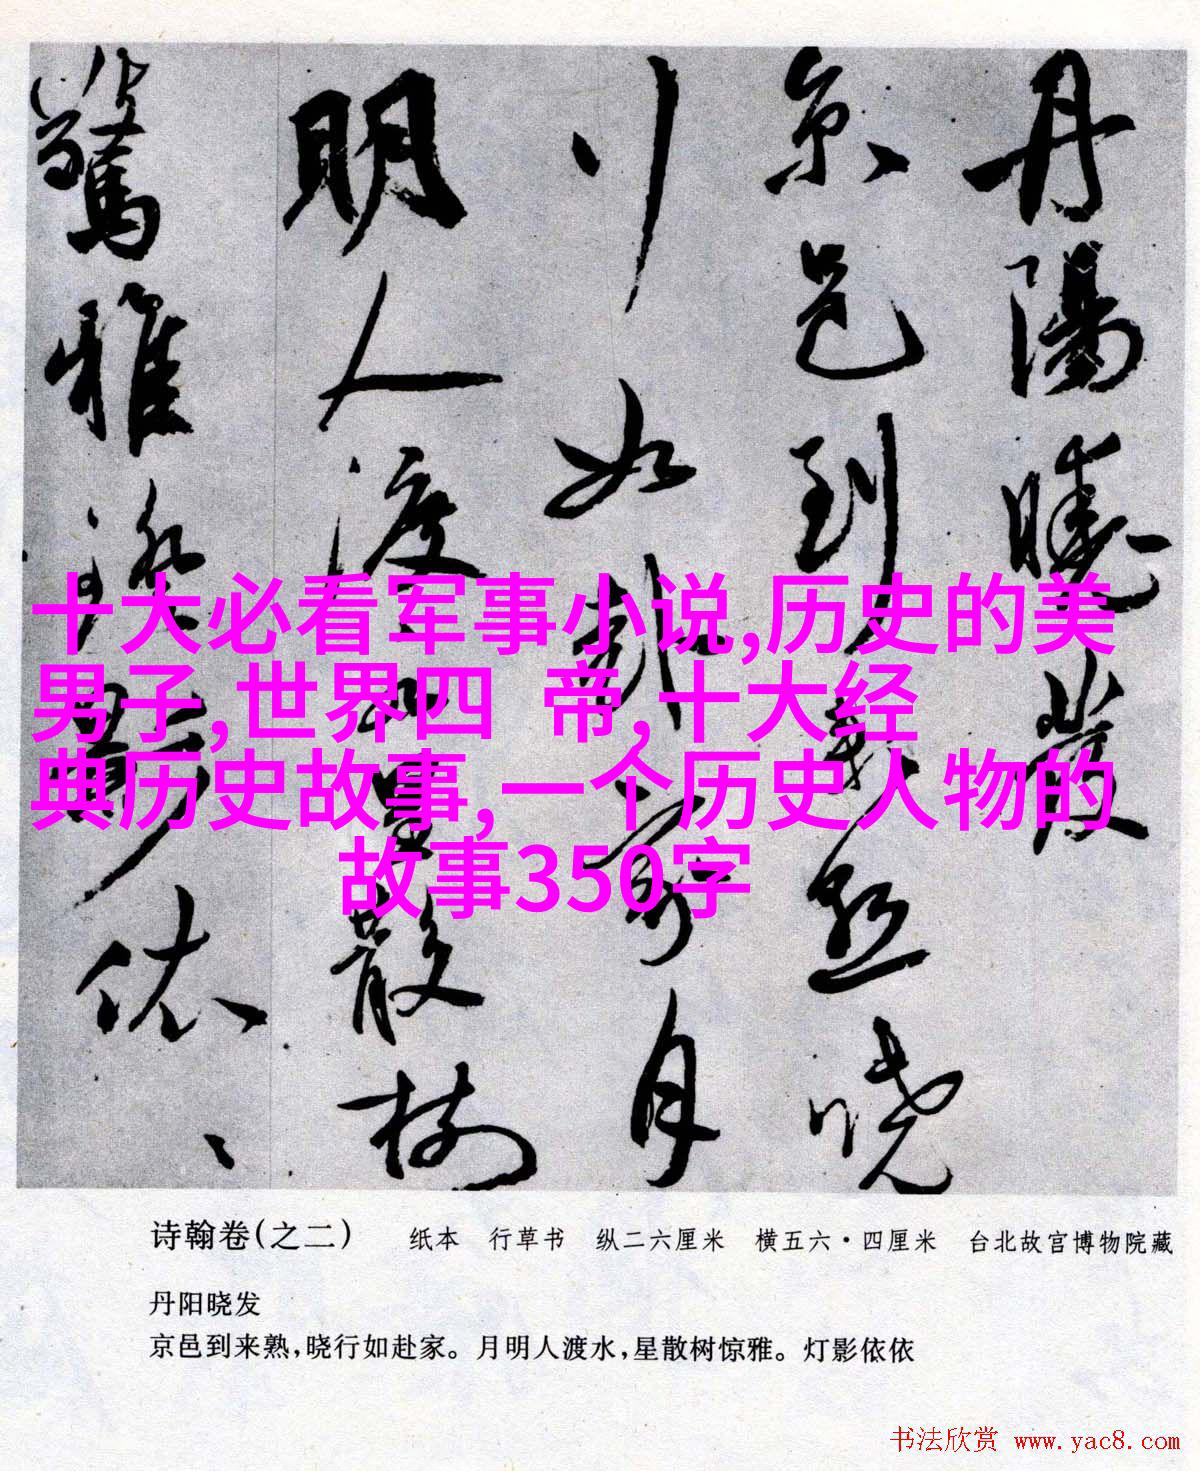 丹陽曉發
京邑到來熟曉
行如赴家月
明人渡水星散樹
驚雅燈影依依
十大必看军事小说,历史的美
男子,世界四 帝,十大经
典历史故事,一个历史人物的
故事350字
诗翰卷(之二) 纸本 行草书 纵二六厘米 横五六·四厘米 台北故宫博物院藏
丹阳晓发
京邑到来熟,晓行如赴家。月明人渡水,星散树惊雅。灯影依依
书法欣赏 www.yac8.com